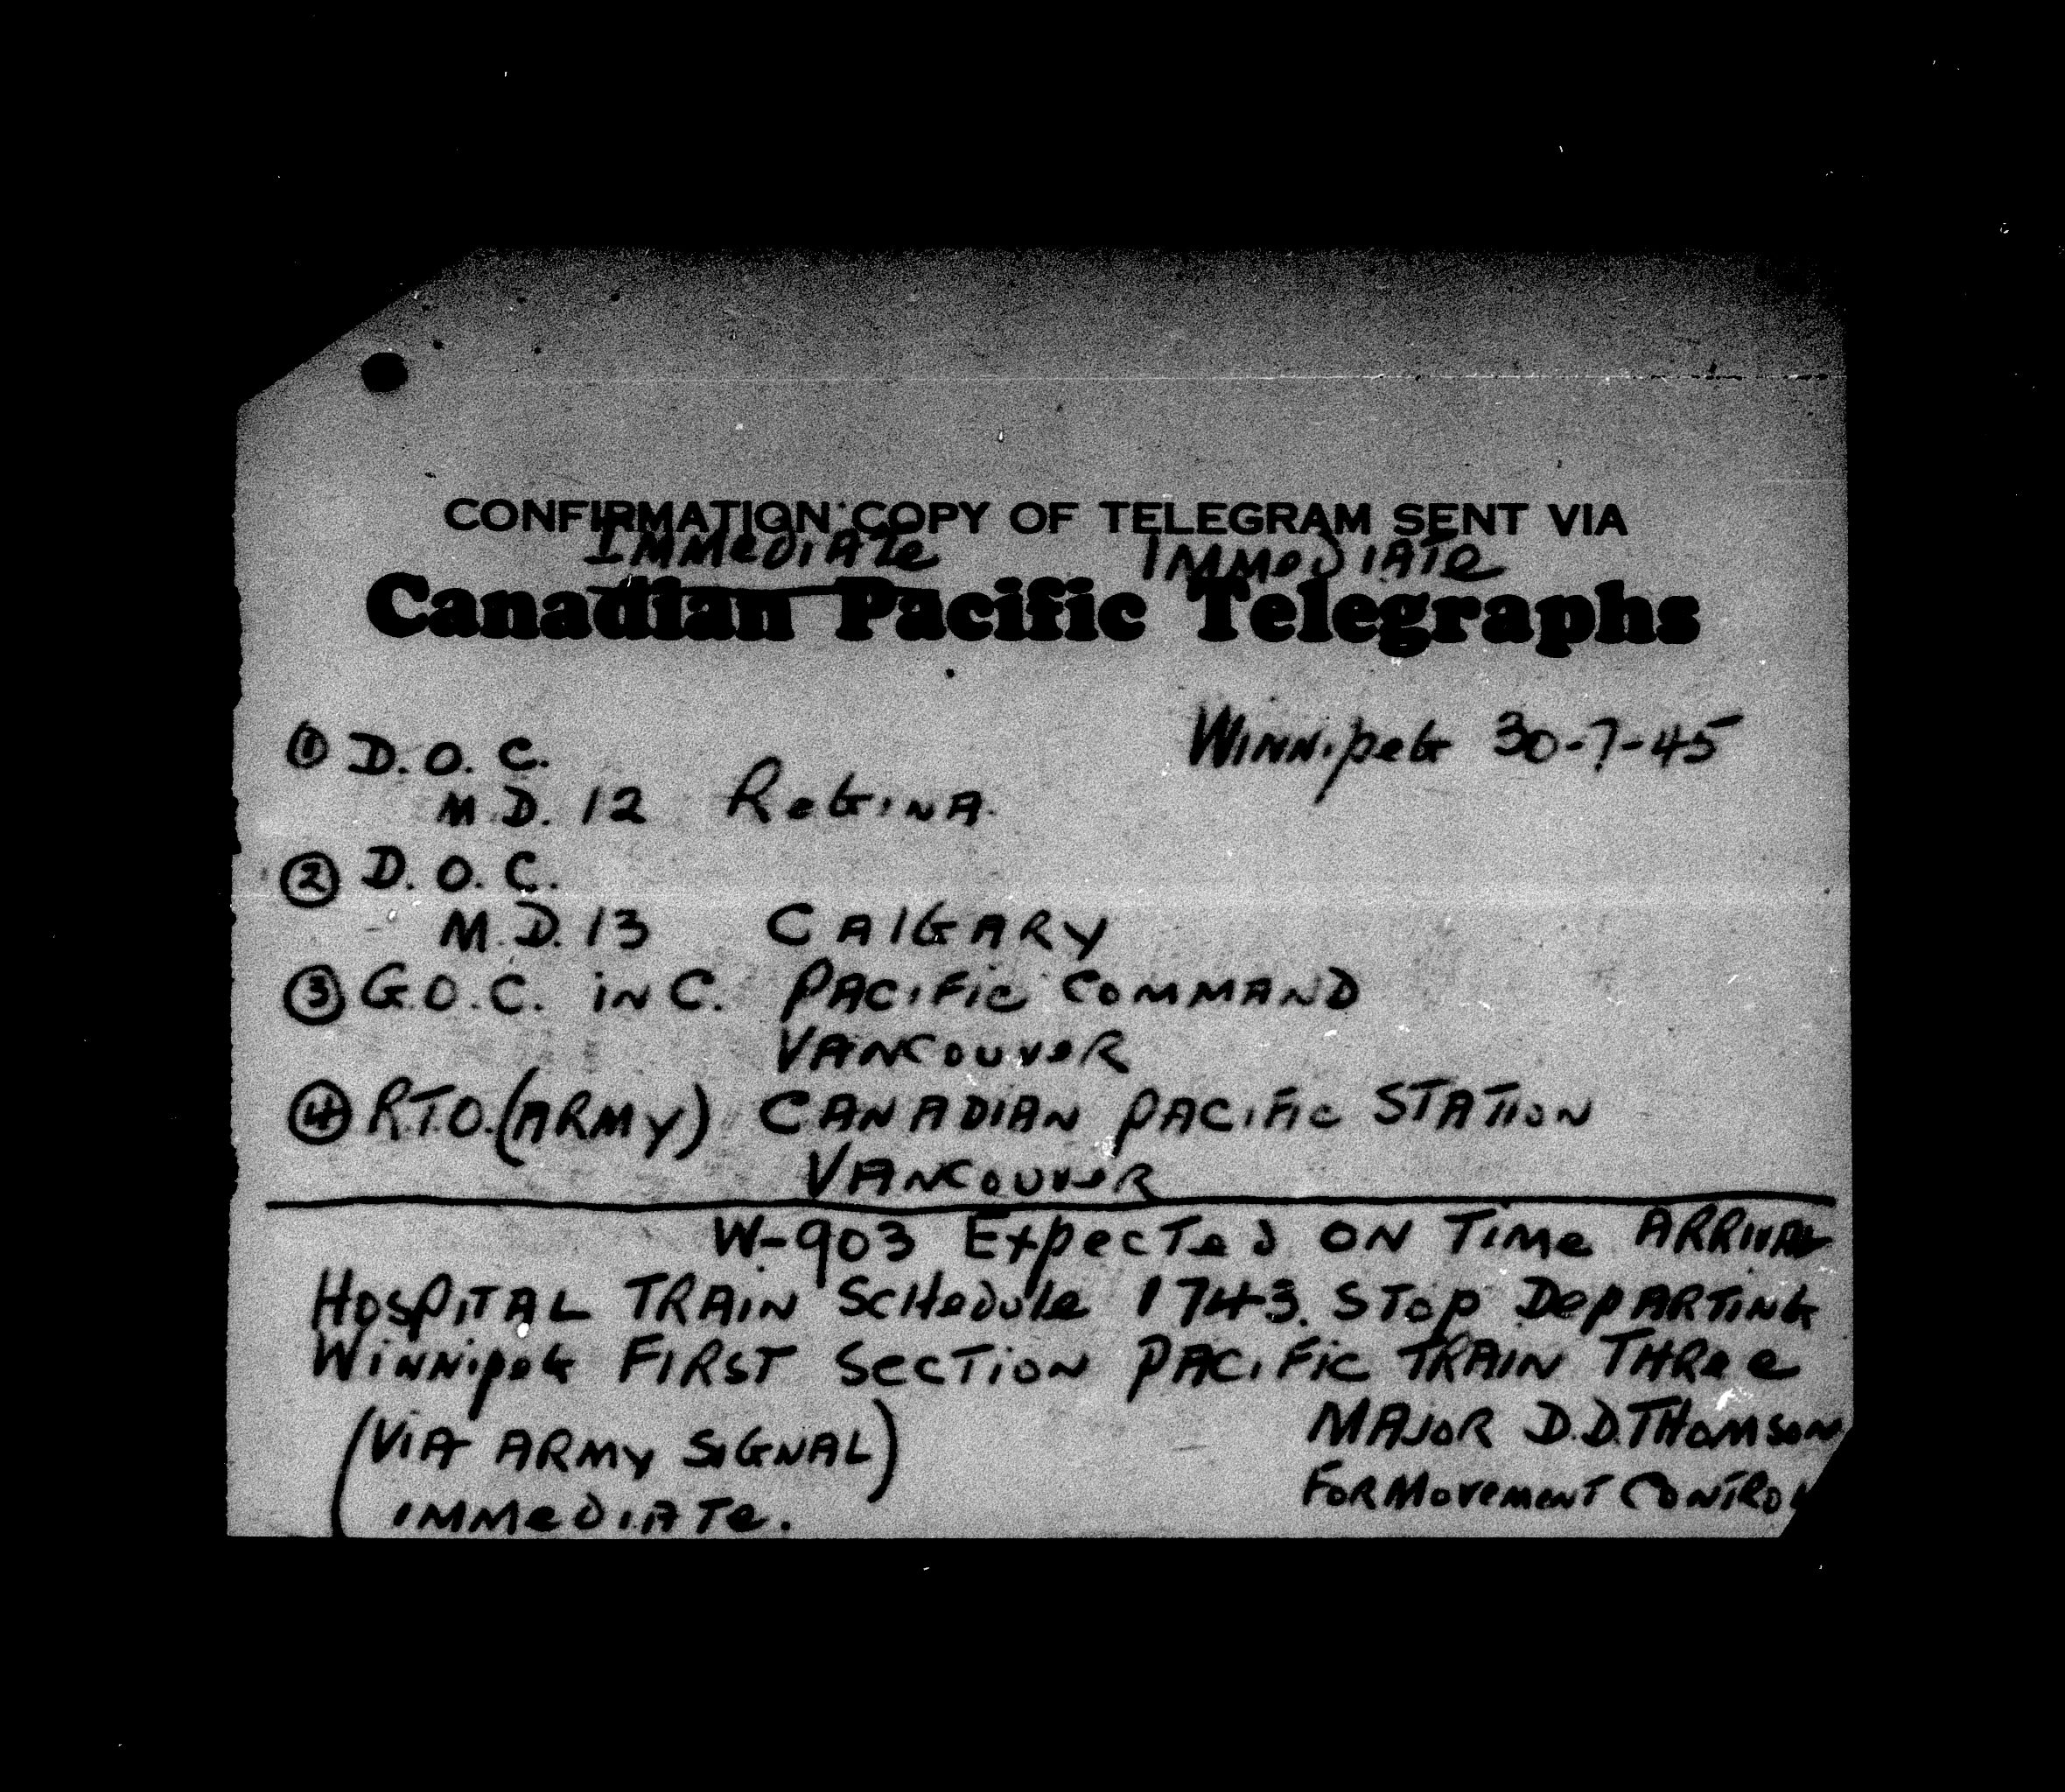 CONFIRMATION COPY OF TELEGRAM SENT VIA
IMMEDIATE IMMEDIATE
Canadian Pacific Telegraphs
WINNIPEG 30-7-45
① D.O.C.
M.D. 12 REGINA.
② D.O.C.
M.D. 13 CALGARY
③ G.O.C. IN C. PACIFIC COMMAND
VANCOUVER
④ R.T.O. (ARMY) CANADIAN PACIFIC STATION
VANCOUVER
W-903 EXPECTED ON TIME ARRIVAL
HOSPITAL TRAIN SCHEDULE 1743. STOP DEPARTING
WINNIPEG FIRST SECTION PACIFIC TRAIN THREE
MAJOR D.D. THOMSON
(VIA ARMY SIGNAL)
FOR MOVEMENT CONTROL
IMMEDIATE.